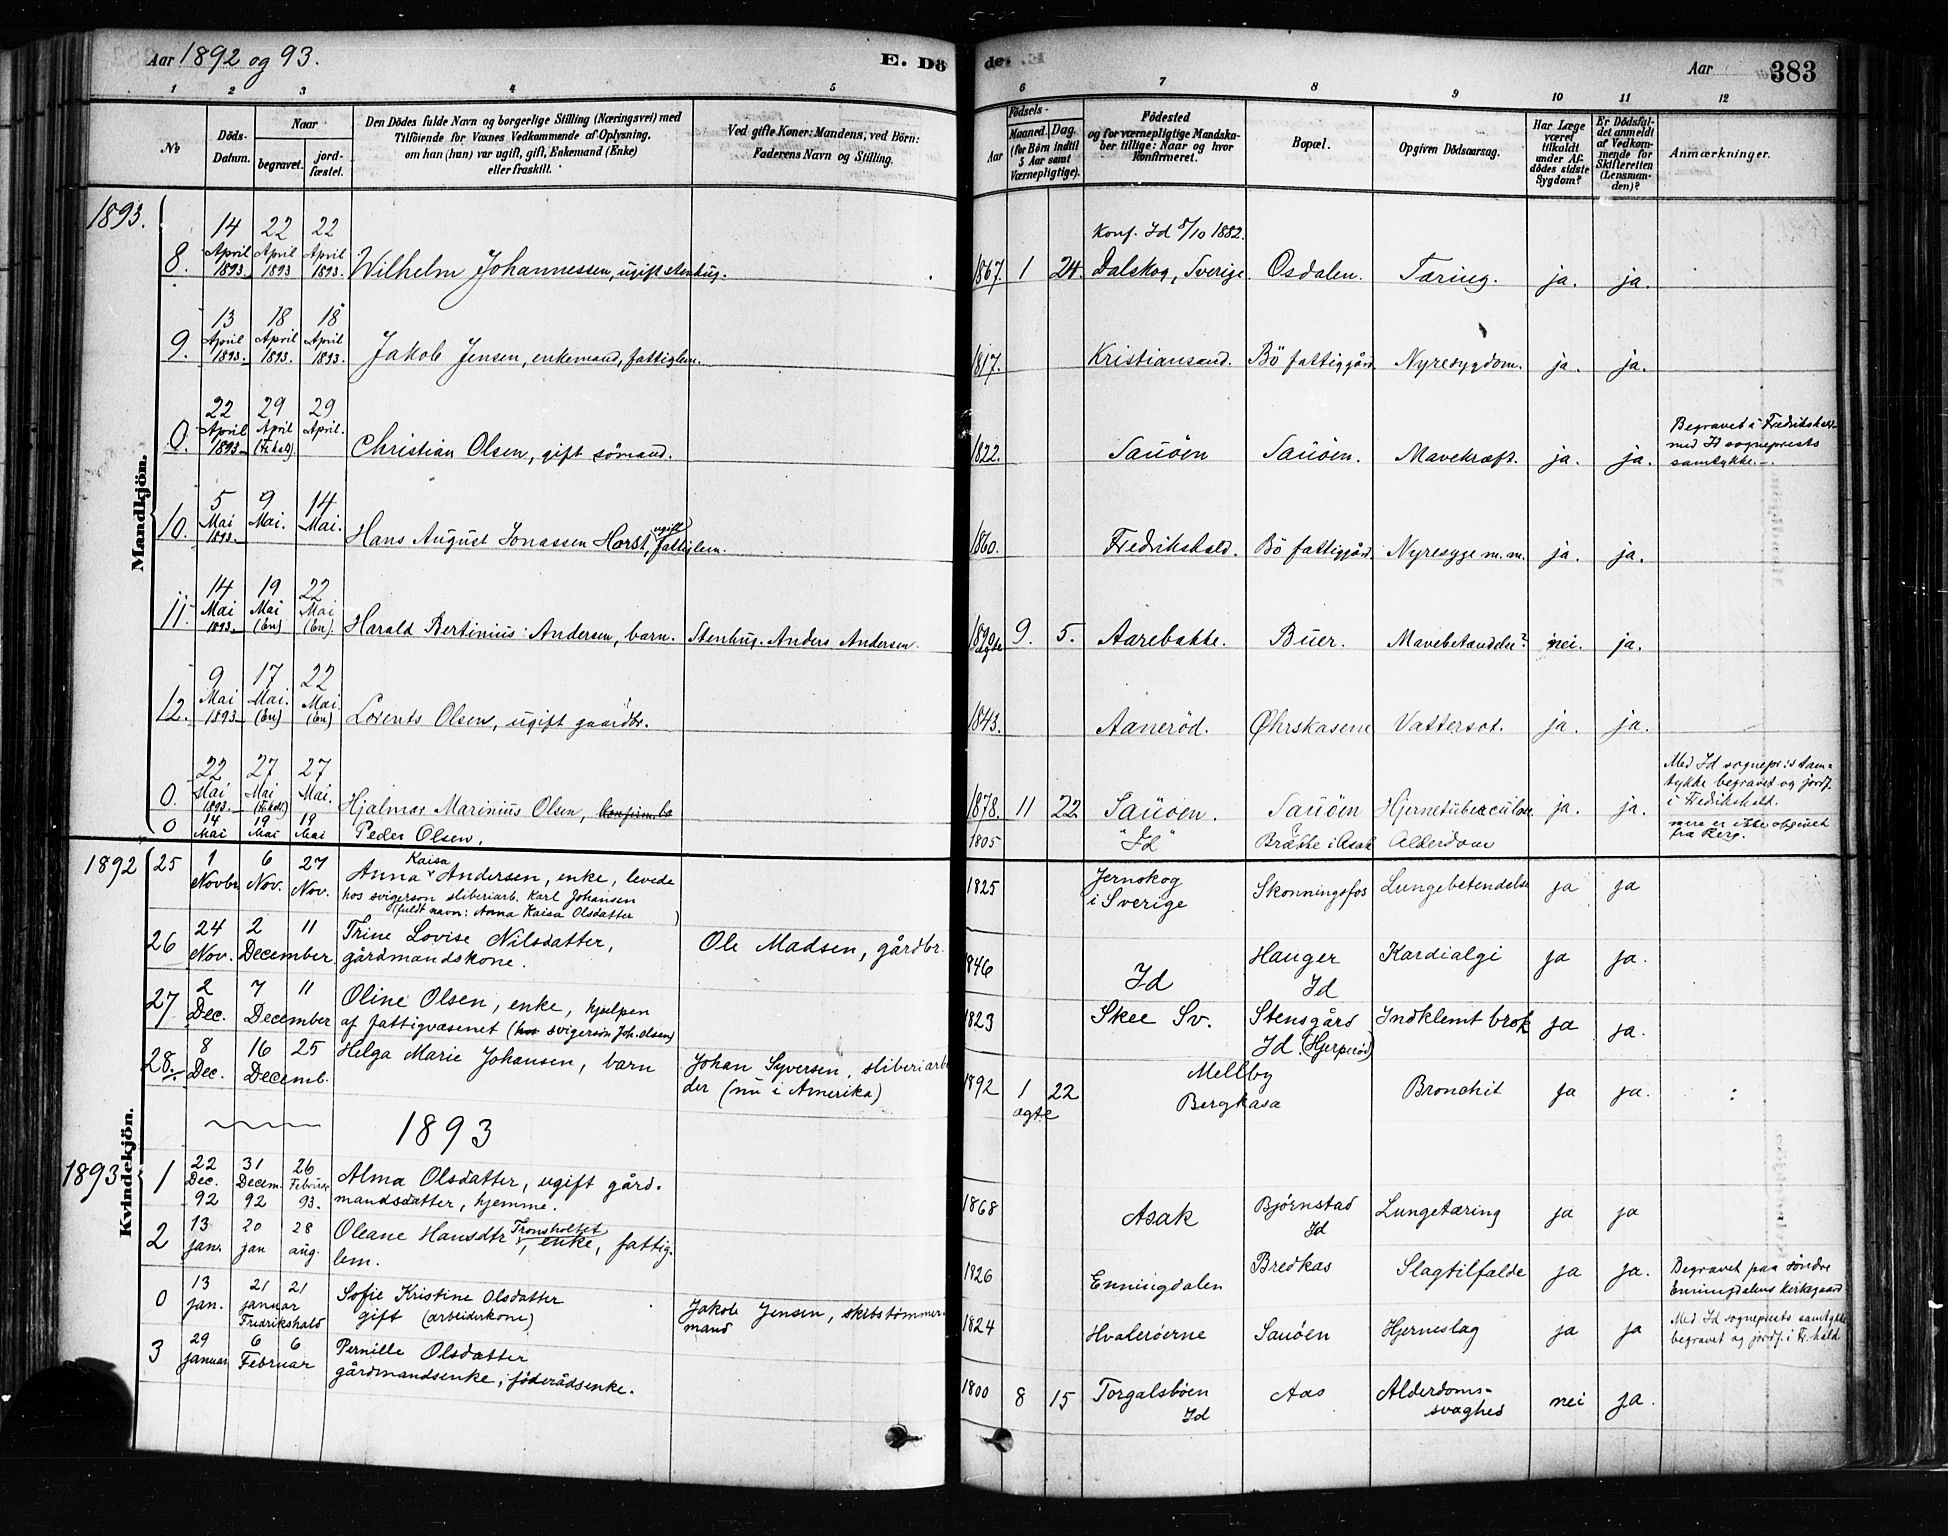 Aar 1892 og 93. E. Dö de. Aar 383
1 2 3 4 5 6 7 8 9 10 11 12
No Döds-Datum. Naar begravet. jordfæstet.
Den Dödes fulde Navn og borgerlige Stilling (Næringsvei) med
Tilföiende for Voxnes Vedkommende af Oplysning,
om han (hun) var ugift, gift, Enkemand (Enke)
eller fraskilt.
Ved gifte Koner: Mandens, ved Börn:
Faderens Navn og Stilling.
Födsels-
Aar Maaned. Dag.
(for Börn indtil 5 Aar samt Værnepligtige).
Födested
og for værnepligtige Mandskaber tillige: Naar og hvor Konfirmeret.
Bopæl.
Opgiven Dödsaarsag.
Har Læge været tilkaldt under Afdödes sidste Sygdom?
Er Dödsfaldet anmeldt af Vedkommende for Skifteretten (Lensmanden)?
Anmærkninger.
Mandkjön.
1893.
8. 14 April 1893 22 April 1893 22 April 1893. Wilhelm Johannessen, ugift stenhug. 1867. 1 24. Konf. Id 8/10 1882. Dalskog, Sverige Osdalen. Tæring. ja. ja.
9. 13 April 1893 18 April 1893. 18 April 1893. Jakob Jensen, enkemand, fattiglem. 1817. Kristiansand. Bö fattiggård. Nyresygdom. ja. ja.
0. 22 April 1893 29 April (Fr.hald). 29 April. Christian Olsen, gift sömand. 1822. Sauöen Sauöen. Mavekræft. ja. ja. Begravet i Fredrikshald med Id sogneprests samtykke.
10. 5 Mai 1893 9 Mai. 14 Mai. Hans August Jonassen Horst, ugift fattiglem. 1860. Fredrikshald. Bö fattiggård Nyresyge m.m. ja. ja.
11. 14 Mai 1893 19 Mai (En) 22 Mai (En). Harald Bertinius Andersen, barn. Stenhug. Anders Andersen. 1890 ægte 9. 5. Aarebakke. Buer. Mavebetændelse? nei. ja.
12. 9 Mai 1893 17 Mai. (En) 22 Mai. (En) Lorents Olsen, ugift gaardbr. 1843. Aaneröd. Øhrskasene Vattersot. ja. ja.
0. 22 Mai 1893. 27 Mai (Fr.hald) 27 Mai. Hjalmar Marinius Olsen, 1878. 11 22 Sauöen. Sauöen Hjernetuberculose. ja. ja. Med Id sognepr:s samtykke begravet og jordf. i Fredrikshald.
0 14 Mai 19 Mai 19 Mai Peder Olsen. 1805 "Id" Brække i Asak Alderdom mere er ikke opgivet fra Berg.
Kvindekjön.
1892
25 1 Novbr 6 Nov. 27 Nov. Anna Kaisa Andersen, enke, levede
hos svigersön sliberiarb. Karl Johansen
(fuldt navn: Anna Kaisa Olsdatter) 1825 Jernskog i Sverige Skonningsfos Lungebetendelse ja ja
26 24 Nov. 2 11 December. Trine Lovise Nilsdatter,
gårdmandskone. Ole Madsen, gårdbr. 1846 Id Hauger Id Kardialgi ja ja.
27 2 Dec. 7 11 December Oline Olsen, enke, hjulpen
af fattigvæsenet (hos svigersön Joh. Olsen) 1823 Skee Sv. Stensgård Id. (Hjerperöd) Indklemt brok ja ja.
28. 8 Dec. 16 25 Decemb. Helga Marie Johansen, barn Johan Syversen, sliberiarbeider (nu i Amerika) 1892 ægte 1 22 Mellby Bergkasa Bronchit ja ja.
1893
1893
1 22 Dec. 92 31 Decem. 92 26 Februar 93. Alma Olsdatter, ugift gårdmandsdatter, hjemme. 1868 Asak Björnstad Id Lungetæring ja ja
2 13 jan. 20 jan 28 aug. Oleane Hansdtr Tronsholtet, enke, fattiglem. 1826 Enningdalen Bredkas Slagtilfælde ja ja. Begravet paa söndre Enningdalens Kirkegaard
0 13 jan. 21 21 januar Fredrikshald Sofie Kristine Olsdatter
gift (arbeiderkone) Jakob Jensen, skibstömmermand 1824 Hvaleröerne Sauöen Hjerneslag ja ja Med Id sogneprests samtykke begravet og jordf. i Fr.hald
3 29 januar 6 6 Februar Pernille Olsdatter
gårdmandsenke, föderådsenke. 1800 8 15 Torgalsböen Id Aas Alderdomssvaghed nei ja.